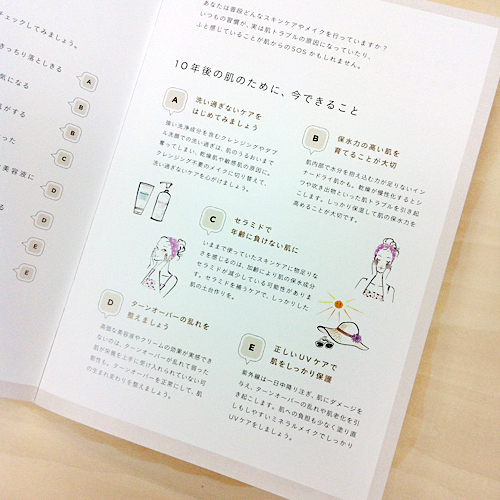 チェックしてみましょう。
きっちり落としきる
A
気になる
B
がする
B
った
C
美容液に
D
D
E
E
あなたは普段どんなスキンケアやメイクを行っていますか？
いつもの習慣が、実は肌トラブルの原因になっていたり、
ふと感じていることが肌からのSOSかもしれません。
10年後の肌のために、今できること
A
洗い過ぎないケアを
はじめてみましょう
強い洗浄成分を含むクレンジングやダブ
ル洗顔での洗い過ぎは、肌のうるおいまで
奪ってしまい、乾燥肌や敏感肌の原因に。
クレンジング不要のメイクに切り替えて、
洗い過ぎないケアを心がけましょう。
B
保水力の高い肌を
育てることが大切
肌内部で水分を抱え込む力が足りないイン
ナードライ肌かも。乾燥が慢性化するとシ
ワや吹き出物といった肌トラブルを引き起
こします。しっかり保湿して肌の保水力を
高めることが大切です。
C
セラミドで
年齢に負けない肌に
いままで使っていたスキンケアに物足りな
さを感じるのは、加齢により肌の保水成分
セラミドが減少している可能性がありま
す。セラミドを補うケアで、しっかりした
肌の土台作りを。
D
ターンオーバーの乱れを
整えましょう
高価な美容液やクリームの効果が実感でき
ないのは、ターンオーバーが乱れて弱った
肌が栄養を上手に受け入れられていない可
能性も。ターンオーバーを正常にして、肌
の生まれ変わりを整えましょう。
E
正しいUVケアで
肌をしっかり保護
紫外線は一日中降り注ぎ、肌にダメージを
与え、ターンオーバーの乱れや肌老化を引
き起こします。肌への負担も少なく塗り直
しもしやすいミネラルメイクでしっかり
UVケアをしましょう。